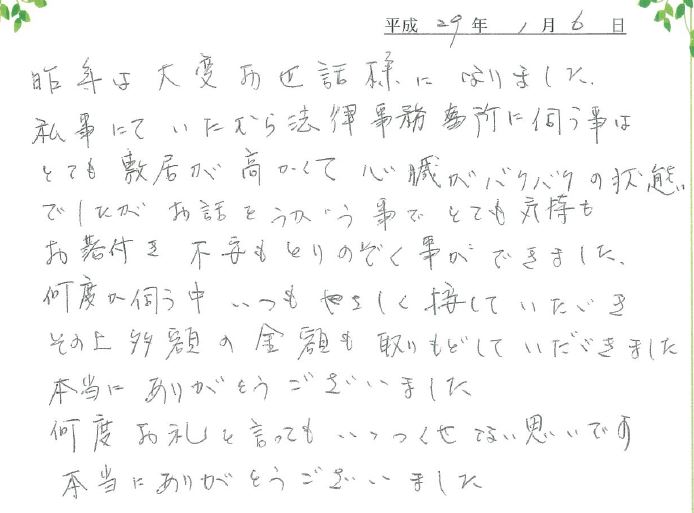 平成29年1月6日
昨年は大変お世話様になりました.
私事にていたむら法律事務所に伺う事は
とても敷居が高かくて心臓がバクバクの状態
でしたがお話をうかがう事でとても気持も
お落付き不安もとりのぞく事ができました、
何度か伺う中いつもやさしく接していただき
その上多額の金額も取りもどしていただきました
本当にありがとうございました
何度お礼を言ってもいいつくせない思いです
本当にありがとうございました